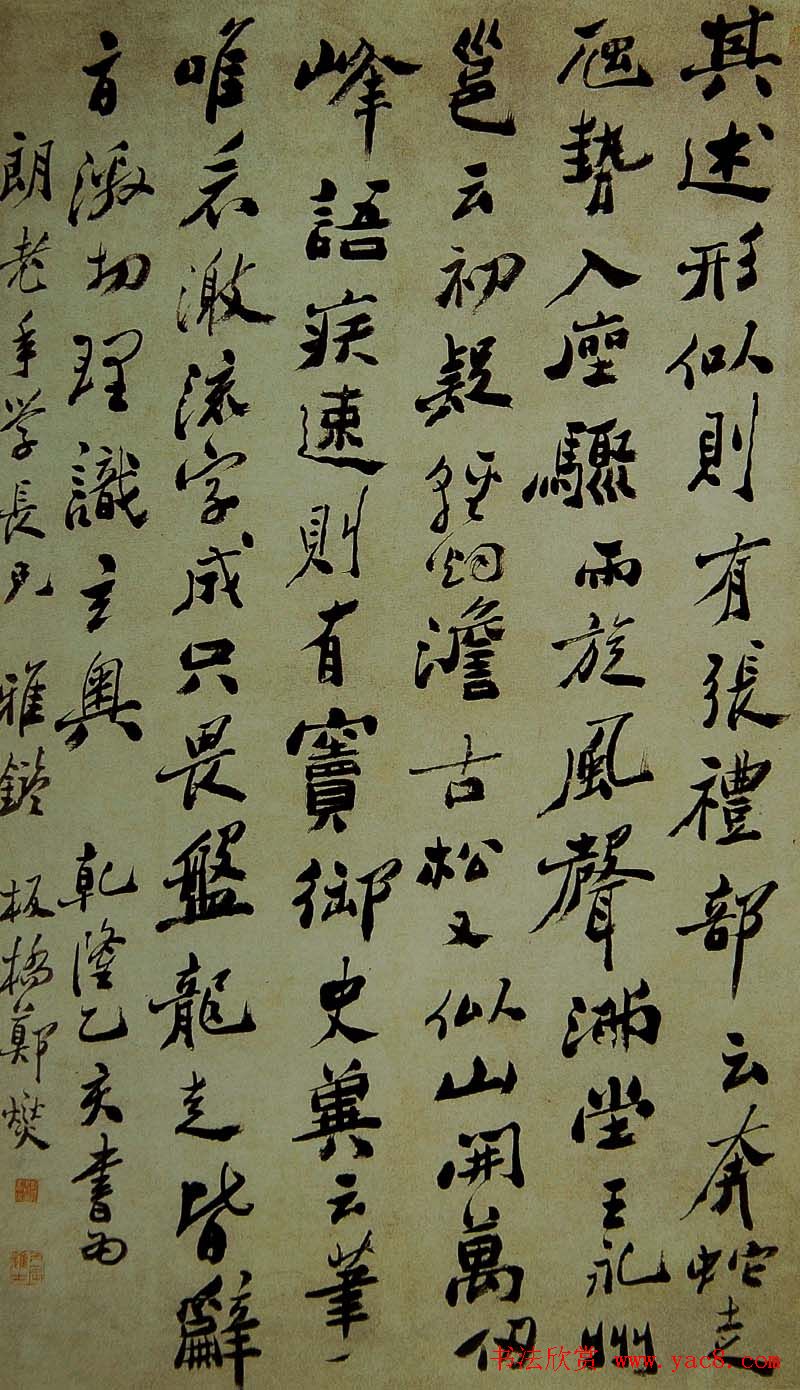 其述形似則有張禮部云奔蛇走
虺勢入座驟雨旋風聲滿堂王永州
邕云初疑輕烟澹古松又似山開萬仞
峰語疾速則有竇御史冀云筆下
唯看激流字成只畏盤龍走皆辭
旨激切理識玄奧 乾隆乙亥書為
朗老年學長兄 雅鑑 板橋鄭燮
书法欣赏 www.yac8.com